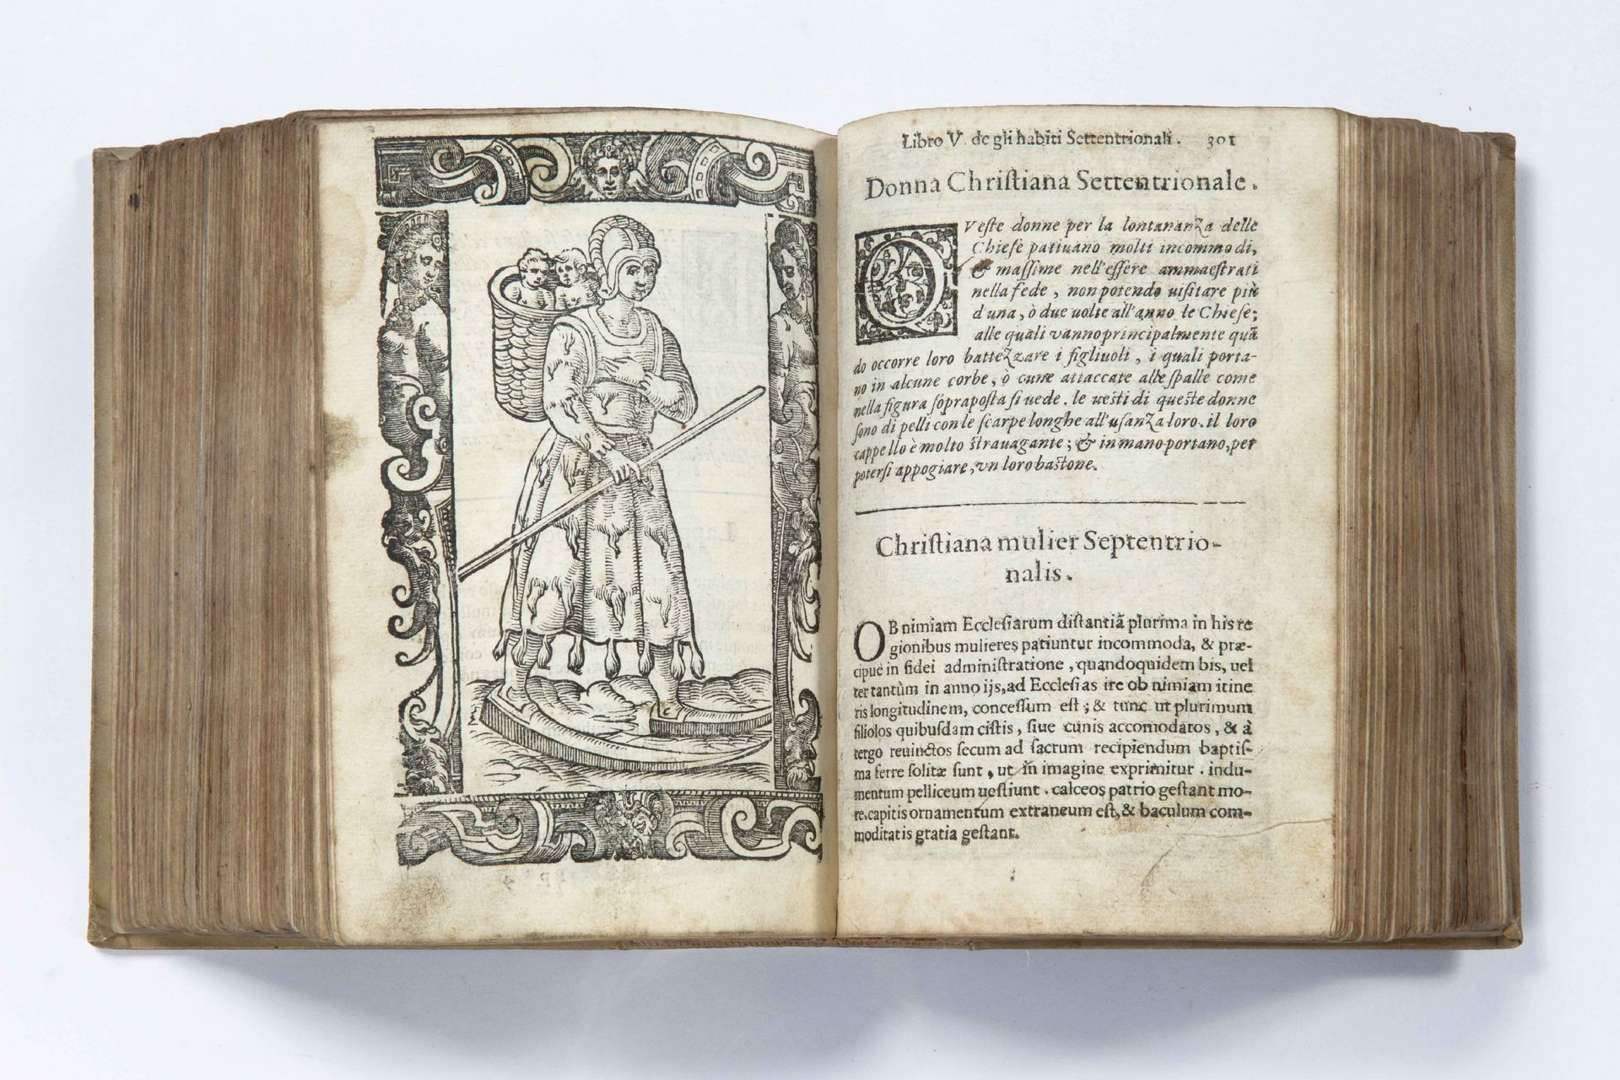 Libro V. de gli habiti Settentrionali. 301
Donna Chriſtiana Settentrionale.
QVeſte donne per la lontananza delle
Chieſe patiuano molti incommodi,
& maſſime nell'eſſere ammaeſtrati
nella fede, non potendo uiſitare più
d'una, ò due uolte all'anno le Chieſe;
alle quali vanno principalmente quā
do occorre loro battezzare i figliuoli, i quali porta-
no in alcune corbe, ò cune attaccate alle ſpalle come
nella figura ſopraposta ſi uede. le ueſti di queſte donne
ſono di pelli con le ſcarpe longhe all'uſanza loro. il loro
cappello è molto ſtrauagante; & in mano portano, per
poterſi appogiare, vn loro baſtone.
Chriſtiana mulier Septentrio-
nalis.
OB nimiam Eccleſiarum diſtantiā plurima in his re
gionibus mulieres patiuntur incommoda, & præ-
cipuè in fidei adminiſtratione, quandoquidem bis, uel
ter tantùm in anno ijs, ad Eccleſias ire ob nimiam itine
ris longitudinem, conceſſum eſt; & tunc ut plurimum
filiolos quibuſdam ciſtis, ſiue cunis accomodatos, & à
tergo reuinctos ſecum ad ſacrum recipiendum baptiſ-
ma ferre ſolitæ ſunt, ut in imagine exprimitur. indu-
mentum pelliceum ueſtiunt. calceos patrio geſtant mo-
re, capitis ornamentum extraneum eſt, & baculum com-
moditatis gratia geſtant.